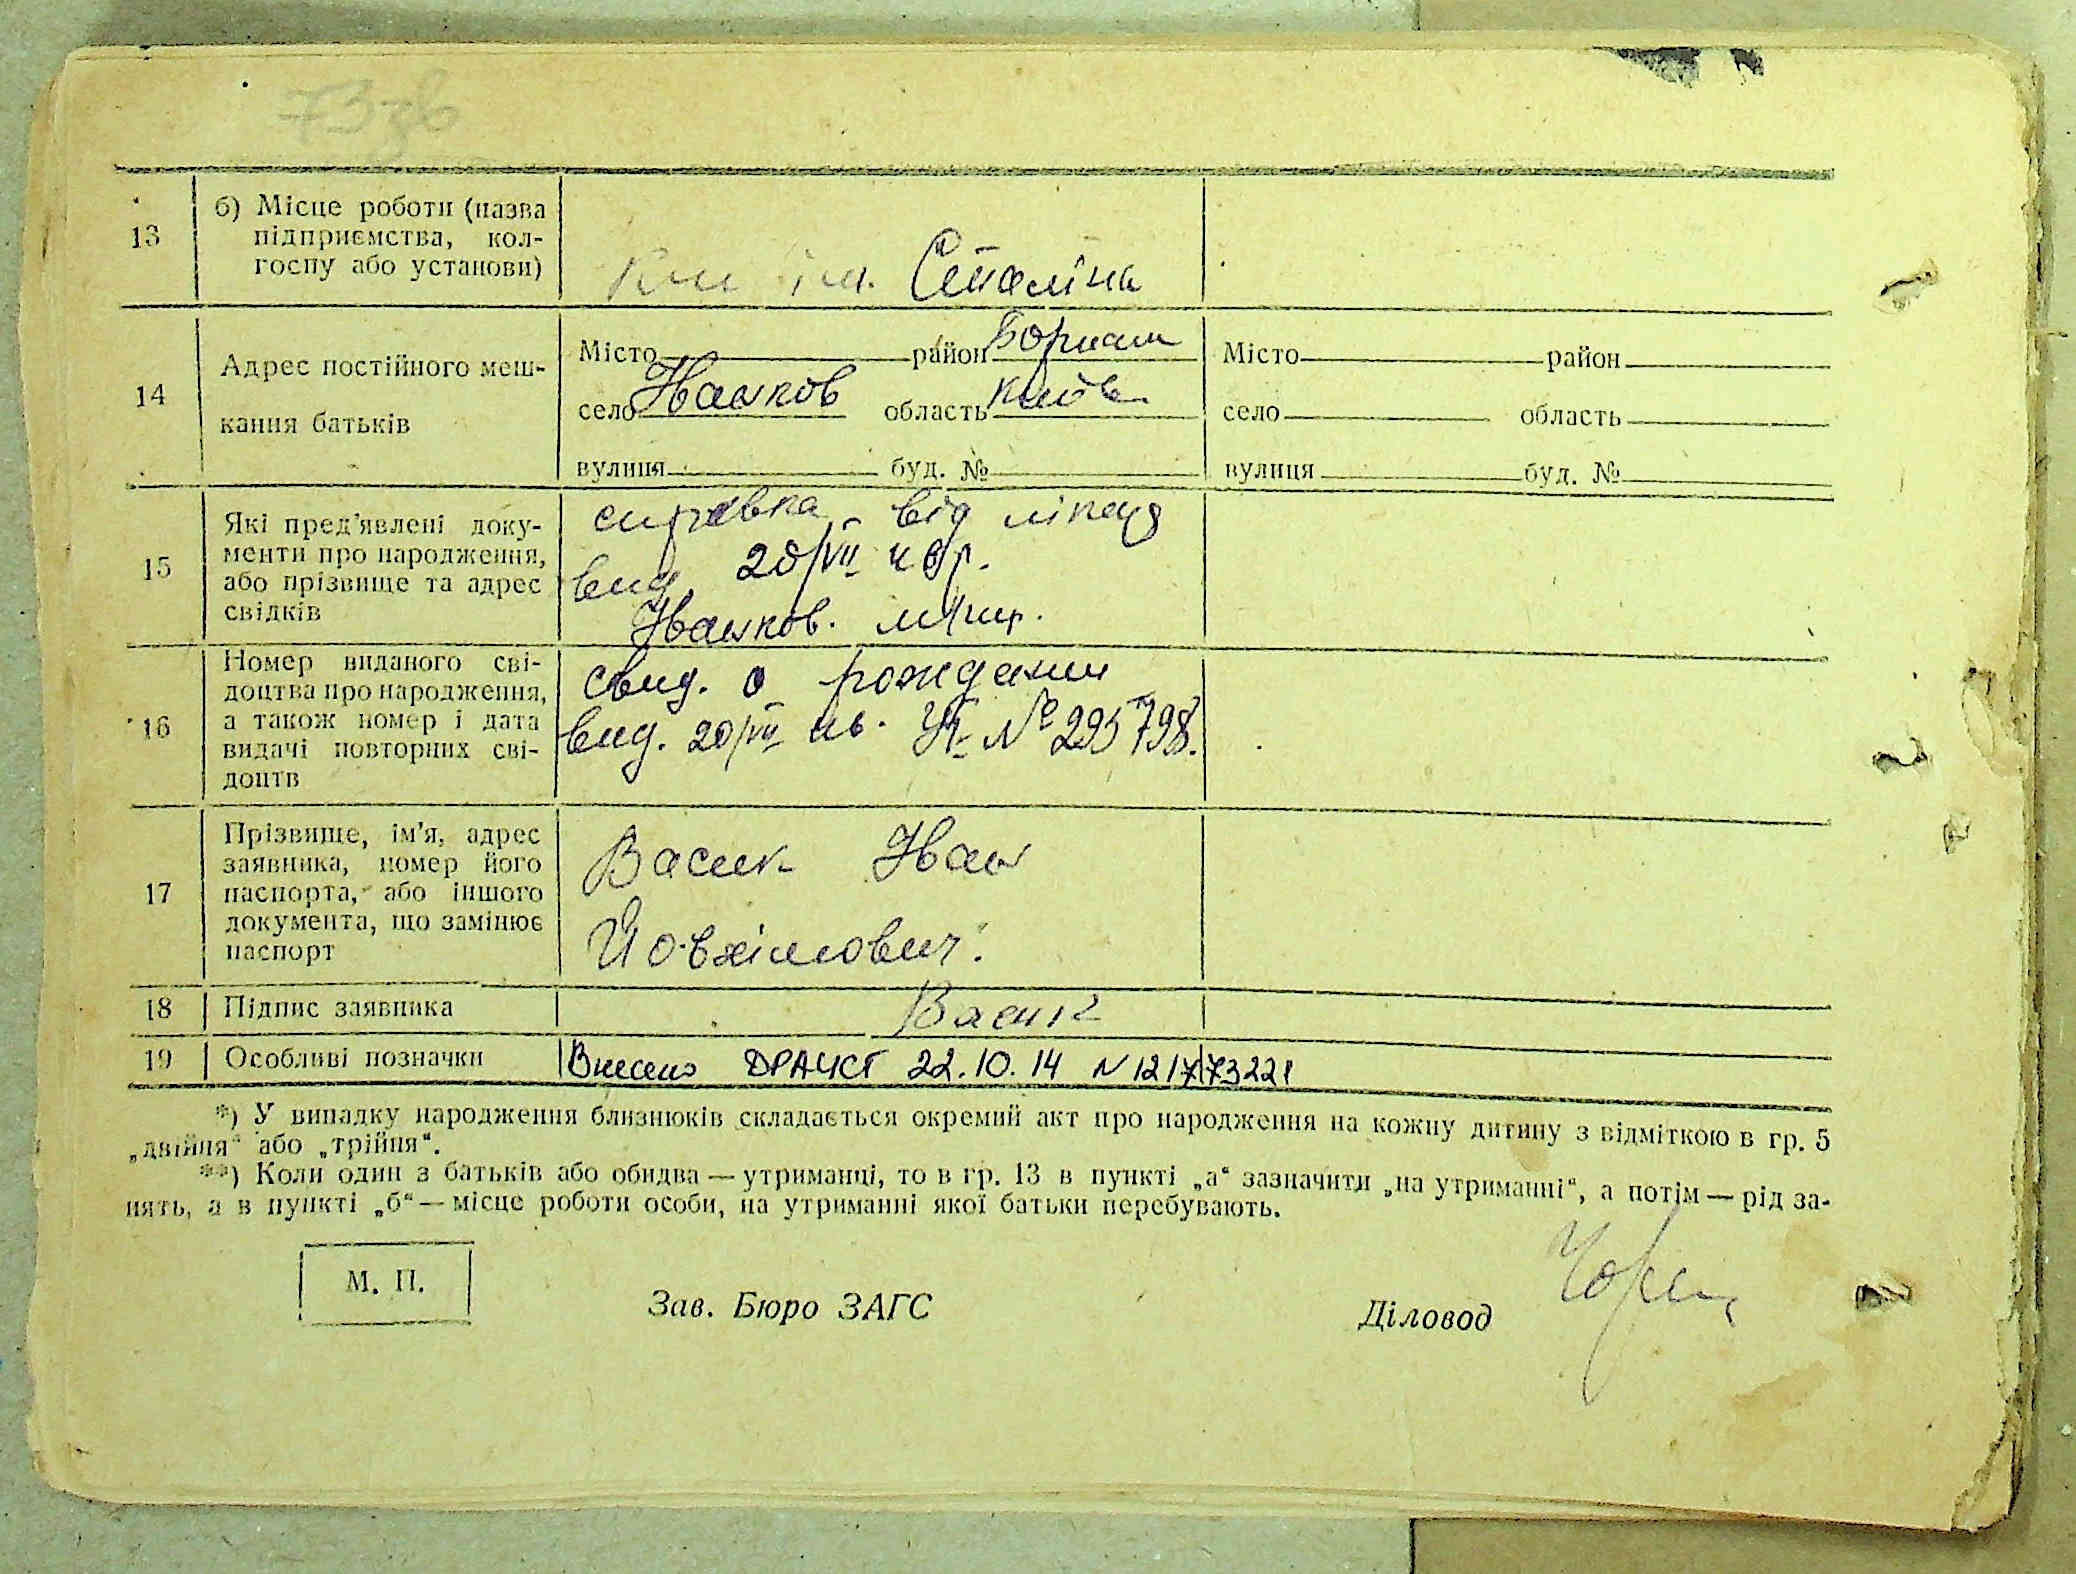 73 зв
13
б) Місце роботи (назва
підприємства, кол-
госпу або установи)
ім. Сталіна
14
Адрес постійного меш-
кання батьків
Місто район Борисп
село Іванков область Київ
вулиця буд. №
Місто район
село область
вулиця буд. №
15
Які пред’явлені доку-
менти про народження,
або прізвище та адрес
свідків
справка від лікар
вид. 20/VII
Іванков.
16
Номер виданого сві-
доцтва про народження,
а також номер і дата
видачі повторних сві-
доцтв
свид. о рождении
выд. 20/VII № 295798.
17
Прізвище, ім’я, адрес
заявника, номер його
паспорта, або іншого
документа, що замінює
паспорт
Васик Иван
Йовхімович.
18
Підпис заявника
Васик
19
Особливі позначки
Внесено ДРАЦСГ 22.10.14 N 12177322
*) У випадку народження близнюків складається окремий акт про народження на кожну дитину з відміткою в гр. 5
„двійня“ або „трійня“.
**) Коли один з батьків або обидва — утриманці, то в гр. 13 в пункті „а“ зазначити „на утриманні“, а потім — рід за-
нять, а в пункті „б“ — місце роботи особи, на утриманні якої батьки перебувають.
М. П.
Зав. Бюро ЗАГС
Діловод